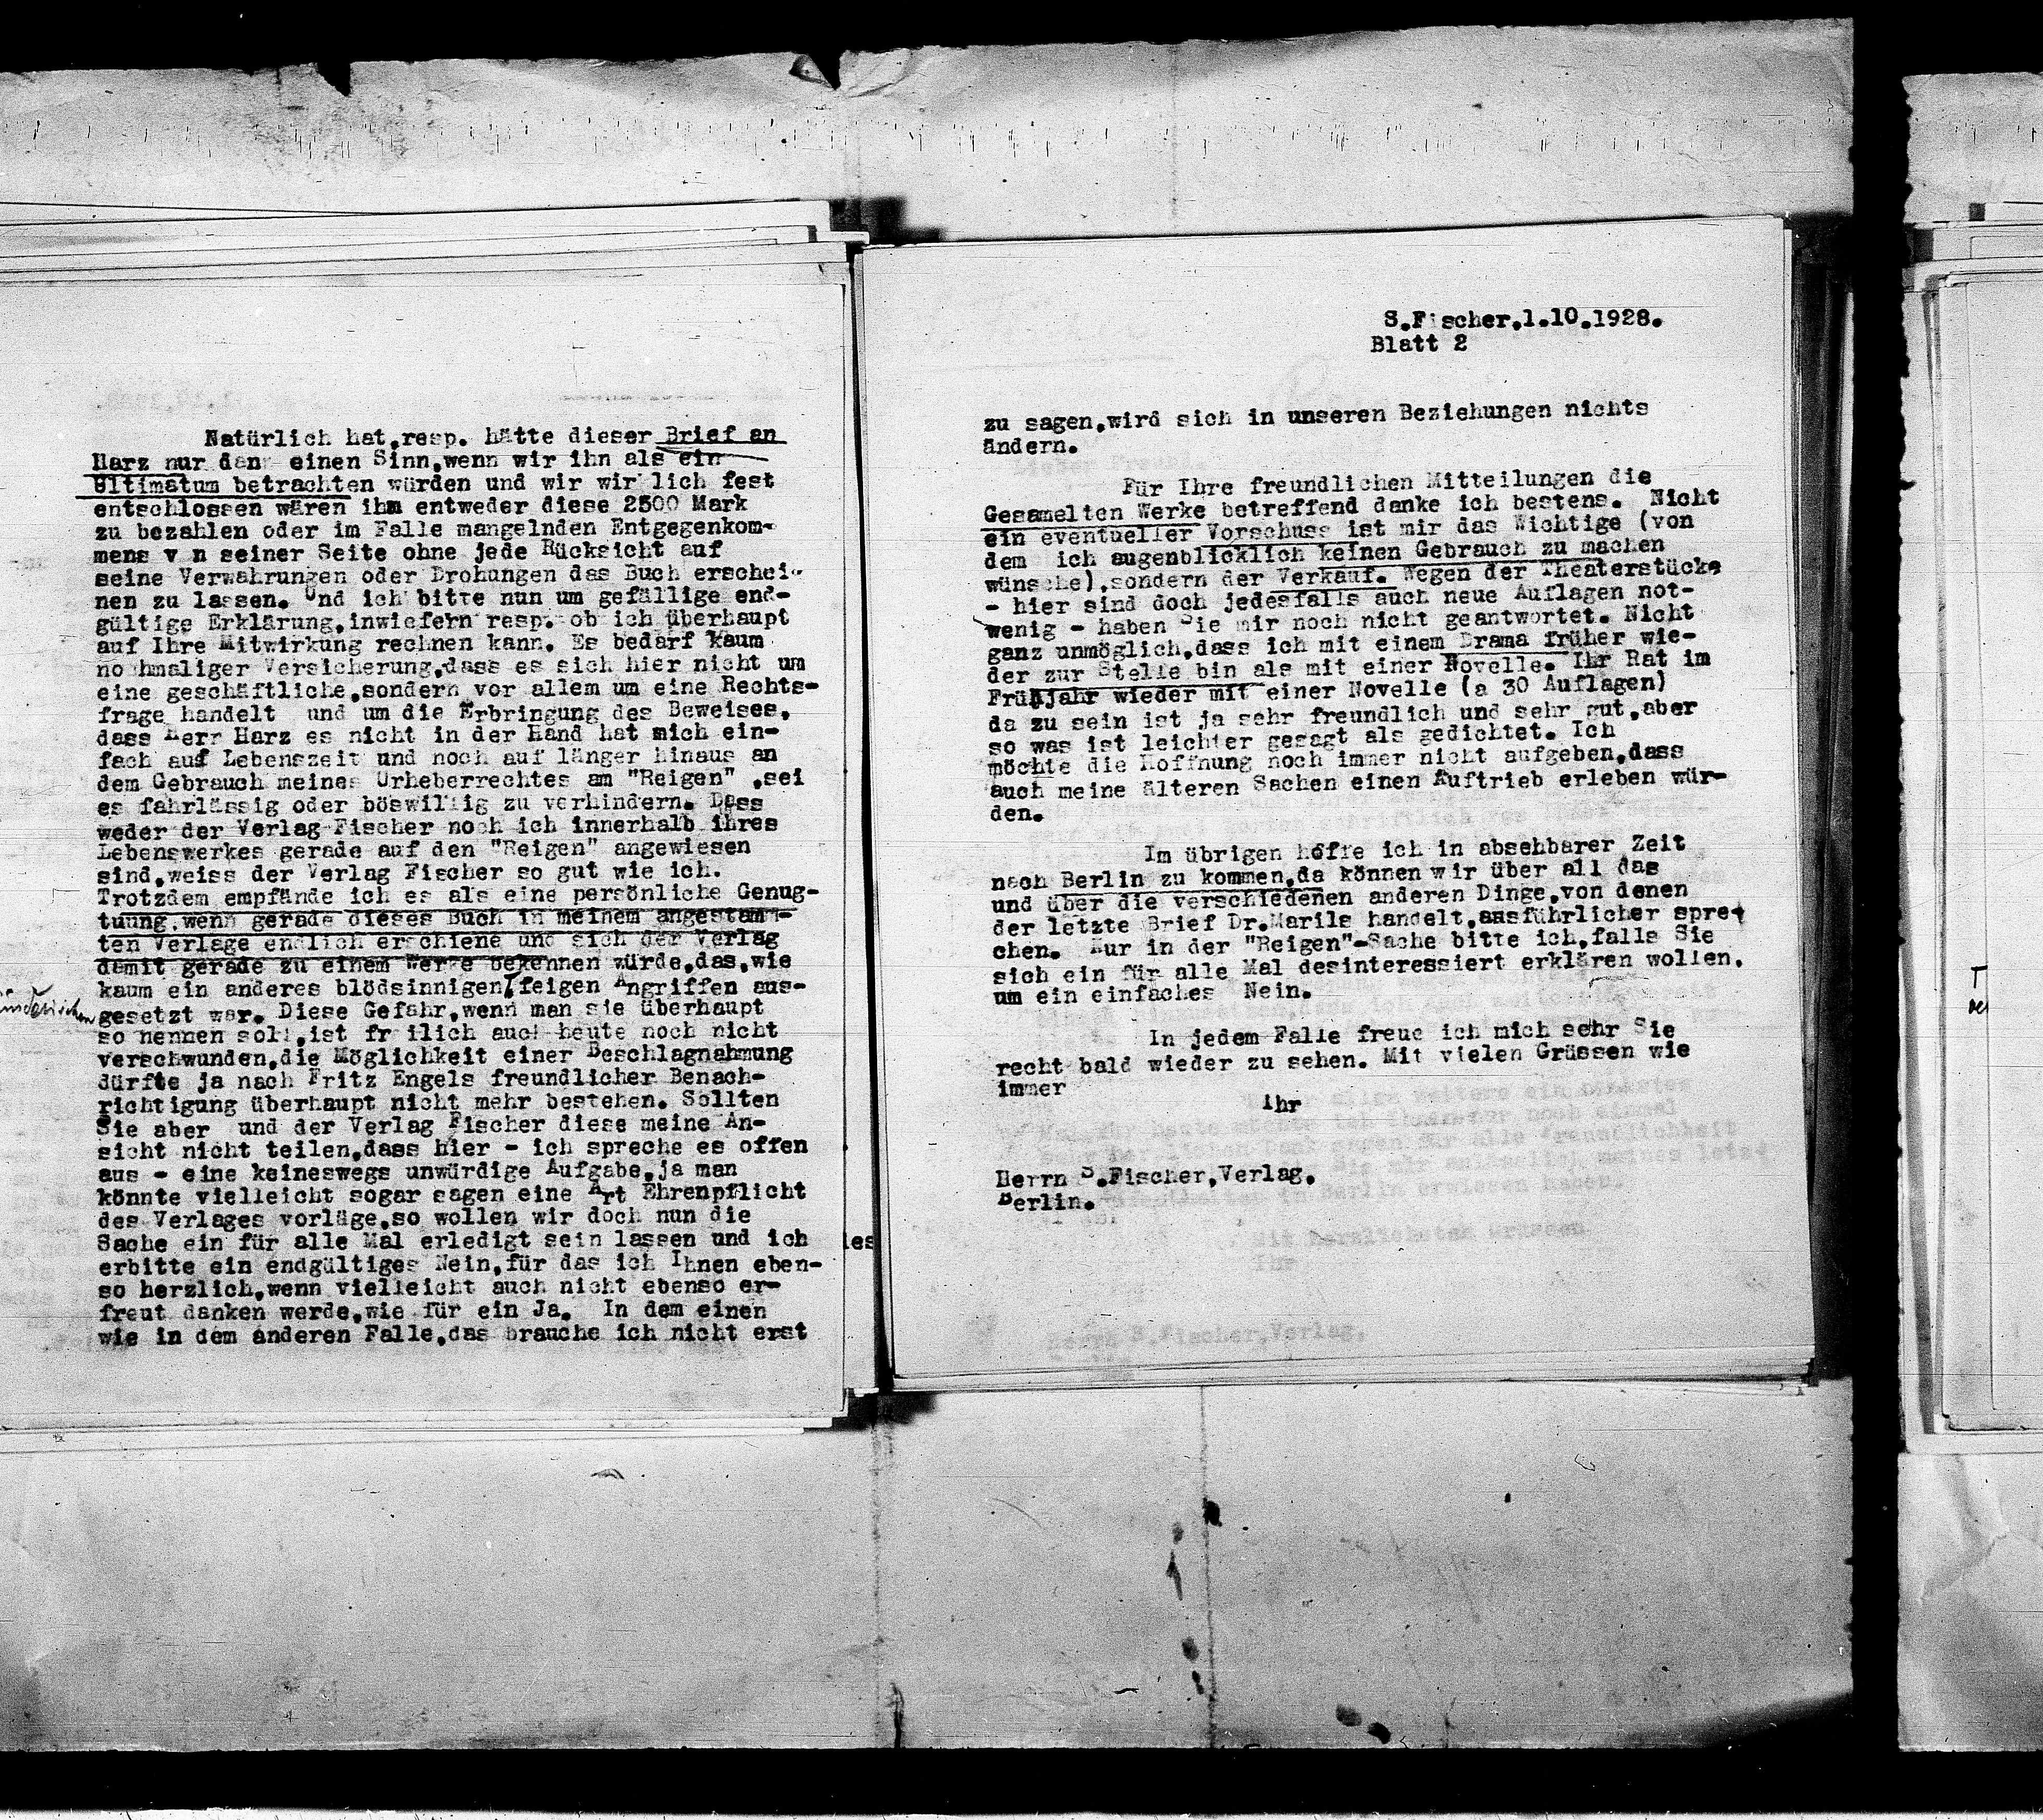 Natürlich hat,resp. hätte dieser Brief an
Harz nur dann einen Sinn,wenn wir ihn als ein
Ultimatum betrachten würden und wir wirklich fest
entschlossen wären ihm entweder diese 2500 Mark
zu bezahlen oder im Falle mangelnden Entgegenkom-
mens v n seiner Seite ohne jede Rücksicht auf
seine Verwahrungen oder Drohungen das Buch erschei-
nen zu lassen. Und ich bitte nun um gefällige end-
gültige Erklärung,inwiefern resp. ob ich überhaupt
auf Ihre Mitwirkung rechnen kann. Es bedarf kaum
nochmaliger Versicherung,dass es sich hier nicht um
eine geschäftliche,sondern vor allem um eine Rechts-
frage handelt und um die Erbringung des Beweises,
dass Herr Harz es nicht in der Hand hat mich ein-
fach auf Lebenszeit und noch auf länger hinaus an
dem Gebrauch meines Urheberrechtes am "Reigen" ,sei
es fahrlässig oder böswillig zu verhindern. Dass
weder der Verlag Fischer noch ich innerhalb ihres
Lebenswerkes gerade auf den "Reigen" angewiesen
sind,weiss der Verlag Fischer so gut wie ich.
Trotzdem empfände ich es als eine persönliche Genug-
tuung,wenn gerade dieses Buch in meinem angestamm-
ten Verlage endlich erschiene und sich der Verlag
damit gerade zu einem Werke bekennen würde,das,wie
kaum ein anderes blödsinnigen feigen Angriffen aus-
gesetzt war. Diese Gefahr,wenn man sie überhaupt
so nennen soll,ist fr ilich auch heute noch nicht
verschwunden,die Möglichkeit einer Beschlagnahmung
dürfte ja nach Fritz Engels freundlicher Benach-
richtigung überhaupt nicht mehr bestehen. Sollten
Sie aber und der Verlag Fischer diese meine An-
sicht nicht teilen,dass hier - ich spreche es offen
aus - eine keineswegs unwürdige Aufgabe,ja man
könnte vielleicht sogar sagen eine Art Ehrenpflicht
des Verlages vorläge,so wollen wir doch nun die
Sache ein für alle Mal erledigt sein lassen und ich
erbitte ein endgültiges Nein,für das ich Ihnen eben-
so herzlich,wenn vielleicht auch nicht ebenso er-
freut danken werde,wie für ein Ja. In dem einen
wie in dem anderen Falle,das brauche ich nicht erst
S.Fischer,1.10.1928.
Blatt 2
zu sagen,wird sich in unseren Beziehungen nichts
ändern.
Für Ihre freundlichen Mitteilungen die
Gesamelten Werke betreffend danke ich bestens. Nicht
ein eventueller Vorschuss ist mir das Wichtige (von
dem ich augenblicklich keinen Gebrauch zu machen
wünsche),sondern der Verkauf. Wegen der Theaterstücke
- hier sind doch jedesfalls auch neue Auflagen not-
wenig - haben Sie mir noch nicht geantwortet. Nicht
ganz unmöglich,dass ich mit einem Drama früher wie-
der zur Stelle bin als mit einer Novelle. Ihr Rat im
Frühjahr wieder mit einer Novelle (a 30 Auflagen)
da zu sein ist ja sehr freundlich und sehr gut,aber
so was ist leichter gesagt als gedichtet. Ich
möchte die Hoffnung noch immer nicht aufgeben,dass
auch meine älteren Sachen einen Auftrieb erleben wür-
den.
Im übrigen hoffe ich in absehbarer Zeit
nach Berlin zu kommen,da können wir über all das
und über die verschiedenen anderen Dinge,von denen
der letzte Brief Dr.Marils handelt,ausführlicher spre-
chen. Nur in der "Reigen"-Sache bitte ich,falls Sie
sich ein für alle Mal desinteressiert erklären wollen,
um ein einfaches Nein.
In jedem Falle freue ich mich sehr Sie
recht bald wieder zu sehen. Mit vielen Grüssen wie
immer
Ihr
Herrn S.Fischer,Verlag.
Berlin.